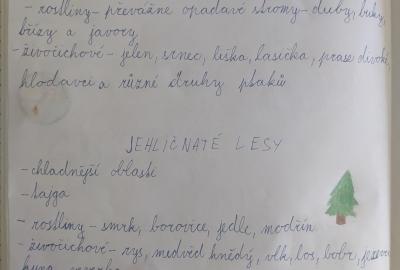 - rostliny - převážně opadavé stromy - duby, buky,
břízy a javory
- živočichové - jelen, srnec, liška, lasička, prase divoké,
hlodavci a různé druhy ptáků
JEHLIČNATÉ LESY
- chladnější oblasti
- tajga
- rostliny - smrk, borovice, jedle, modřín
- živočichové - rys, medvěd hnědý, vlk, los, bobr,